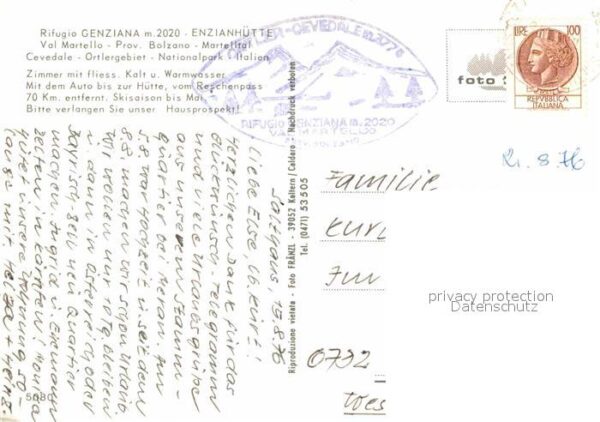 Rifugio GENZIANA m. 2020 - ENZIANHÜTTE
Val Martello - Prov. Bolzano - Martelltal
Cevedale - Ortlergebiet - Nationalpark - Italien
Zimmer mit fliess. Kalt u. Warmwasser
Mit dem Auto bis zur Hütte, vom Reschenpass
70 Km. entfernt. Skisaison bis Mai
Bitte verlangen Sie unser Hausprospekt!
RIFUGIO GENZIANA m. 2020
VAL MARTELLO
foto
LIRE 100
REPVBBLICA
ITALIANA
21. 8. 76
Riproduzione vietata - Foto FRÄNZL - 39052 Kaltern / Caldaro - Nachdruck verboten
Tel. (0471) 53 505
15.8.76
Liebe Else, lb. Kurt!
Herzlichen Dank für das
Glückwunsch-Telegramm
und viele Urlaubsgrüße
aus unserem Stamm-
quartier bei Meran. Am
5.8. war Hochzeit u. seit dem
8.8. machen wir schon Urlaub.
Wir wollen nur 10 Tg. bleiben
u. dann in Österreich oder
Bayrisch-Zell neu Quartier
machen.
hütet unsere Wohnung so-
lange mit Helga + Heinz.
Familie
Kurt
Im
0732
Wes
privacy protection
Datenschutz
5080